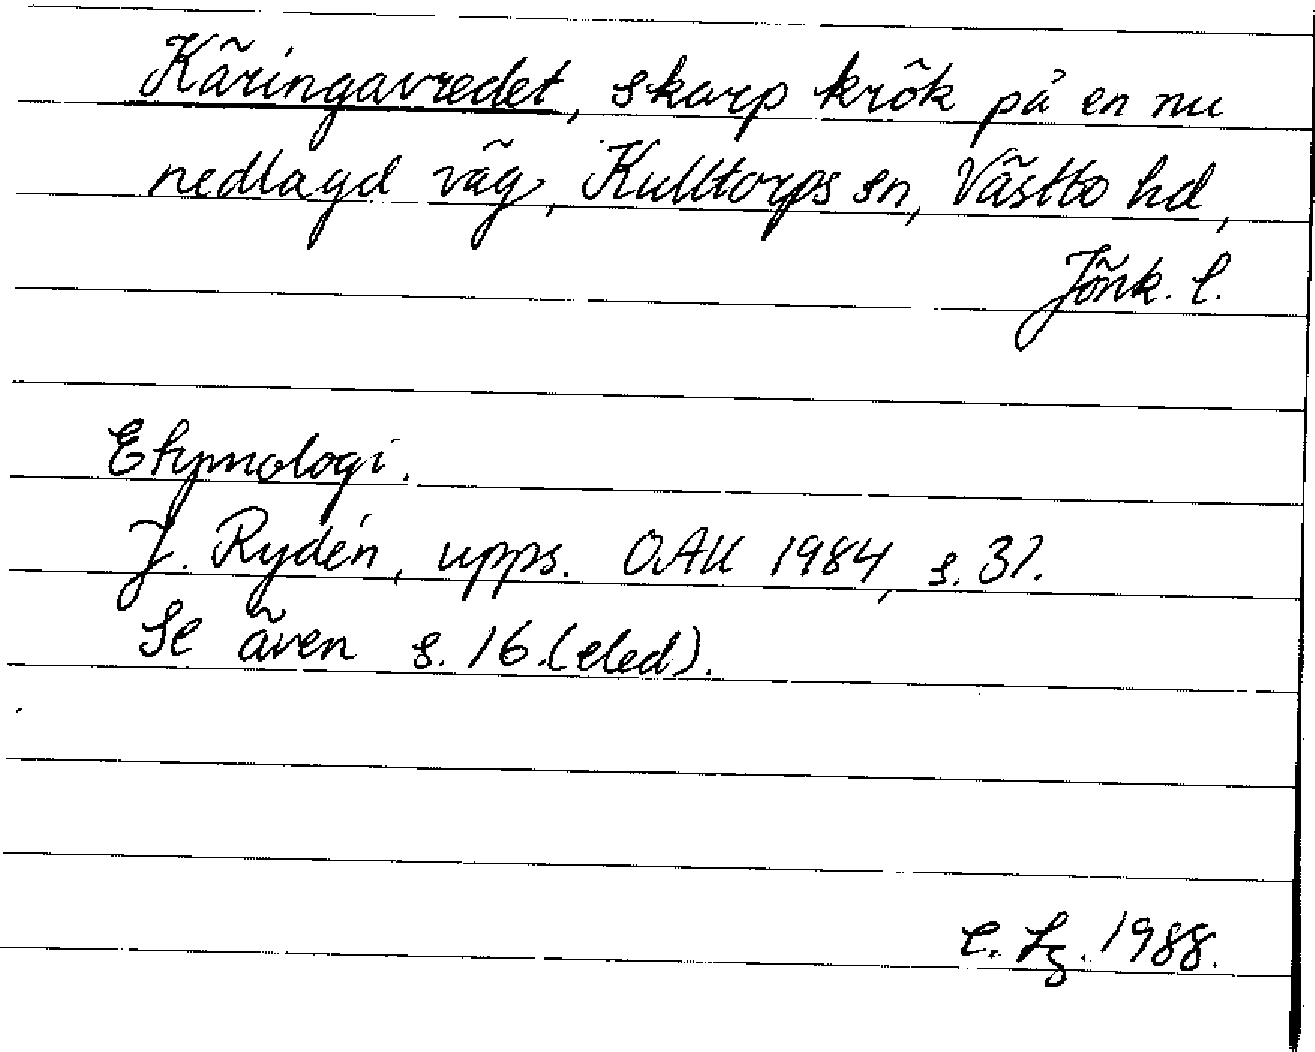 Käringavredet, skarp krök på en nu
nedlagd väg, Kulltorps sn, Västbo hd,
Jönk. l.
Etymologi.
J. Rydén, upps. OAU 1984, s. 37.
Se även s. 16 (eled).
C. Lg. 1988.